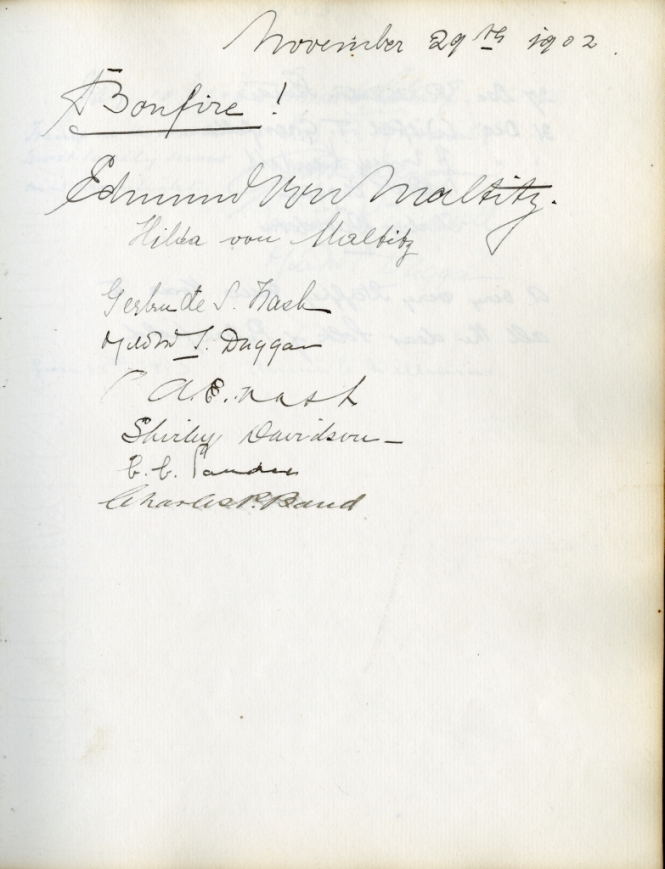 November 29th 1902.
Bonfire!
Edmund von Maltitz.
Hilda von Maltitz
Gertrude S. Nash
S. Duggan
A.E. Nash
Shirley Davidson
Charles P. Band